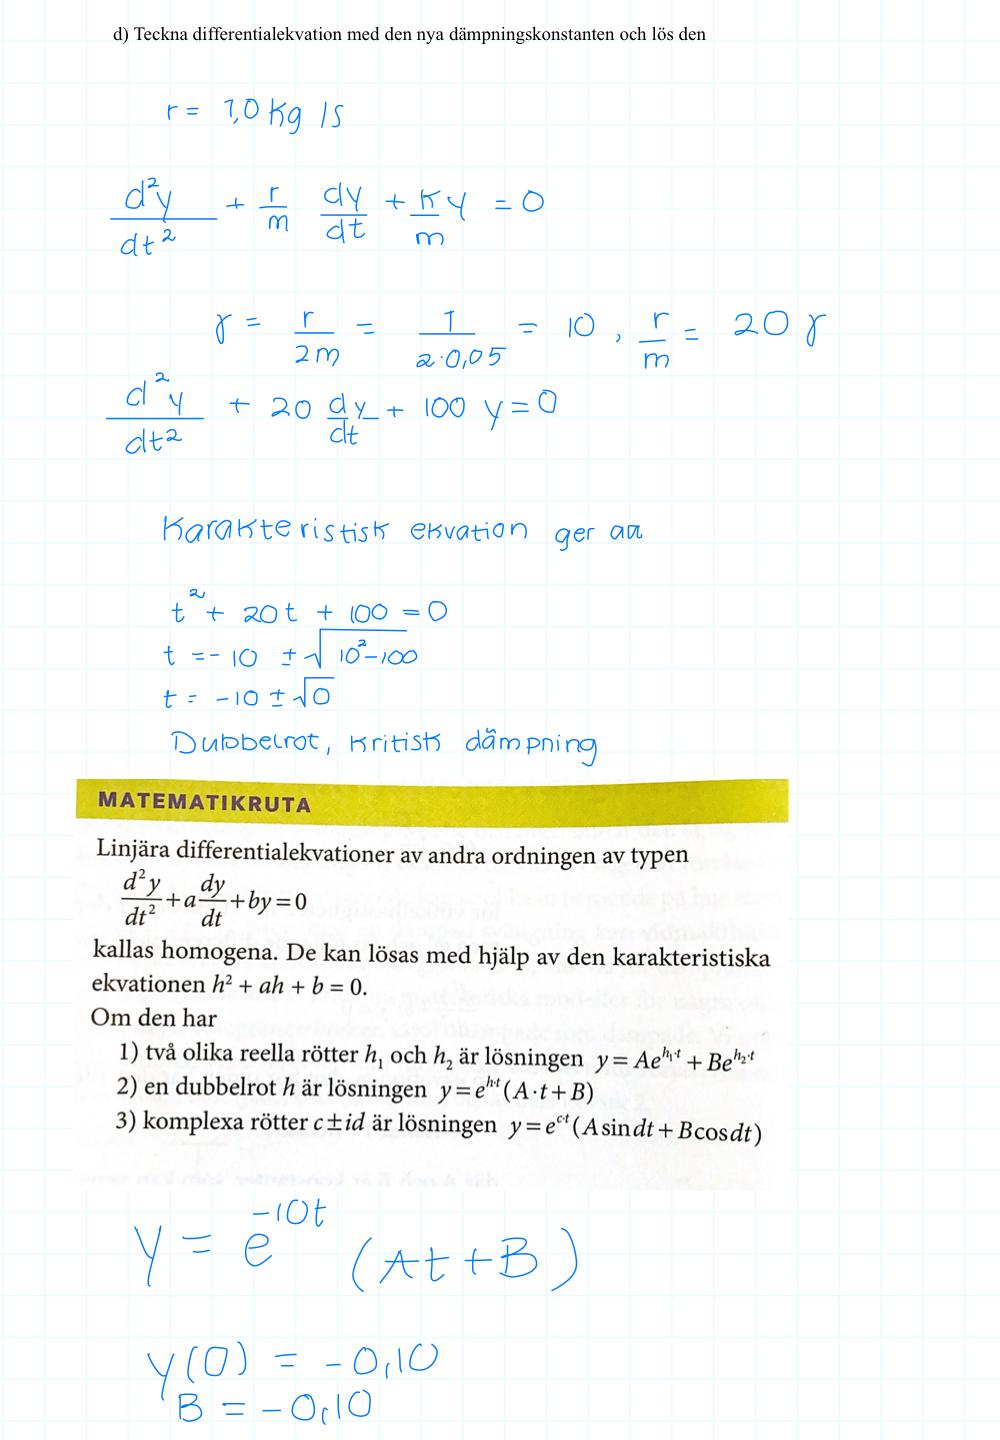 d) Teckna differentialekvation med den nya dämpningskonstanten och lös den
r = 1,0 kg /s
d²y/dt² + r/m dy/dt + k/m y = 0
γ = r/2m = 1/2·0,05 = 10, r/m = 20 γ
d²y/dt² + 20 dy/dt + 100 y = 0
Karakteristisk ekvation ger
t² + 20t + 100 = 0
t = -10 ± √10²-100
t = -10 ± √0
Dubbelrot, kritisk dämpning
MATEMATIKRUTA
Linjära differentialekvationer av andra ordningen av typen
d²y/dt² + a dy/dt + by = 0
kallas homogena. De kan lösas med hjälp av den karakteristiska
ekvationen h² + ah + b = 0.
Om den har
1) två olika reella rötter h₁ och h₂ är lösningen y = Ae^(h₁·t) + Be^(h₂·t)
2) en dubbelrot h är lösningen y = e^(h·t) (A·t + B)
3) komplexa rötter c ± id är lösningen y = e^(ct) (A sin dt + B cos dt)
y = e^(-10t) (At + B)
y(0) = -0,10
B = -0,10